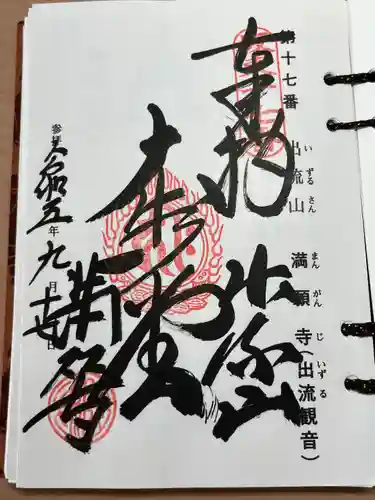 第十七番 出流山 満願寺(出流観音)
いずるさん まんがんじ いずる
奉拝 出流山
本堂
満願寺
参拝 令和五年九月十七日